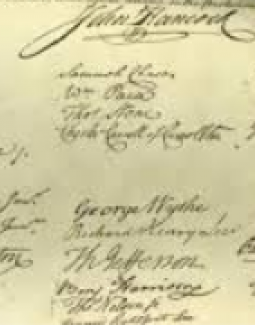 John Hancock
Samuel Chase
Wm Paca
Thos Stone
Charles Carroll of Carrollton
George Wythe
Richard Henry Lee
Th Jefferson
Benj Harrison
Thos Nelson jr